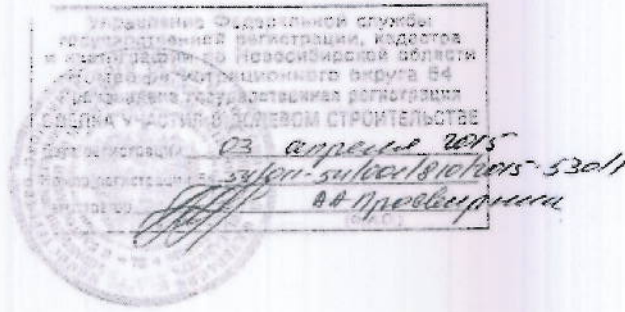 Управление Федеральной службы
государственной регистрации, кадастра
и картографии по Новосибирской области
Номер регистрационного округа 54
Произведена государственная регистрация
СДЕЛКА УЧАСТИЯ В ДОЛЕВОМ СТРОИТЕЛЬСТВЕ
Дата регистрации 03 апреля 2015
Номер регистрации 54-